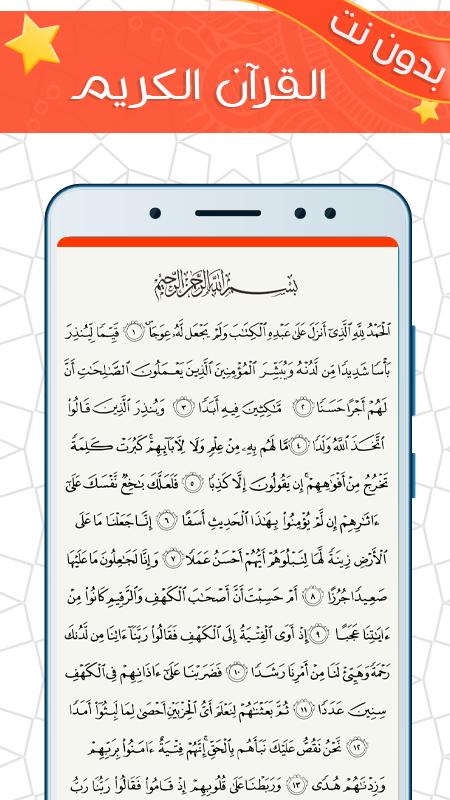 بدون نت
القرآن الكريم
بِسْمِ اللَّهِ الرَّحْمَٰنِ الرَّحِيمِ
الْحَمْدُ لِلَّهِ الَّذِي أَنزَلَ عَلَىٰ عَبْدِهِ الْكِتَابَ وَلَمْ يَجْعَل لَّهُ عِوَجَاۜ ١ قَيِّمًا لِّيُنذِرَ
بَأْسًا شَدِيدًا مِّن لَّدُنْهُ وَيُبَشِّرَ الْمُؤْمِنِينَ الَّذِينَ يَعْمَلُونَ الصَّالِحَاتِ أَنَّ
لَهُمْ أَجْرًا حَسَنًا ٢ مَّاكِثِينَ فِيهِ أَبَدًا ٣ وَيُنذِرَ الَّذِينَ قَالُوا
اتَّخَذَ اللَّهُ وَلَدًا ٤ مَّا لَهُم بِهِ مِنْ عِلْمٍ وَلَا لِآبَائِهِمْ ۚ كَبُرَتْ كَلِمَةً
تَخْرُجُ مِنْ أَفْوَاهِهِمْ ۚ إِن يَقُولُونَ إِلَّا كَذِبًا ٥ فَلَعَلَّكَ بَاخِعٌ نَّفْسَكَ عَلَىٰ
ءَاثَارِهِمْ إِن لَّمْ يُؤْمِنُوا بِهَٰذَا الْحَدِيثِ أَسَفًا ٦ إِنَّا جَعَلْنَا مَا عَلَى
الْأَرْضِ زِينَةً لَّهَا لِنَبْلُوَهُمْ أَيُّهُمْ أَحْسَنُ عَمَلًا ٧ وَإِنَّا لَجَاعِلُونَ مَا عَلَيْهَا
صَعِيدًا جُرُزًا ٨ أَمْ حَسِبْتَ أَنَّ أَصْحَابَ الْكَهْفِ وَالرَّقِيمِ كَانُوا مِنْ
ءَايَاتِنَا عَجَبًا ٩ إِذْ أَوَى الْفِتْيَةُ إِلَى الْكَهْفِ فَقَالُوا رَبَّنَا ءَاتِنَا مِن لَّدُنكَ
رَحْمَةً وَهَيِّئْ لَنَا مِنْ أَمْرِنَا رَشَدًا ١٠ فَضَرَبْنَا عَلَىٰ ءَاذَانِهِمْ فِي الْكَهْفِ
سِنِينَ عَدَدًا ١١ ثُمَّ بَعَثْنَاهُمْ لِنَعْلَمَ أَيُّ الْحِزْبَيْنِ أَحْصَىٰ لِمَا لَبِثُوا أَمَدًا
١٢ نَّحْنُ نَقُصُّ عَلَيْكَ نَبَأَهُم بِالْحَقِّ ۚ إِنَّهُمْ فِتْيَةٌ ءَامَنُوا بِرَبِّهِمْ
وَزِدْنَاهُمْ هُدًى ١٣ وَرَبَطْنَا عَلَىٰ قُلُوبِهِمْ إِذْ قَامُوا فَقَالُوا رَبُّنَا رَبُّ